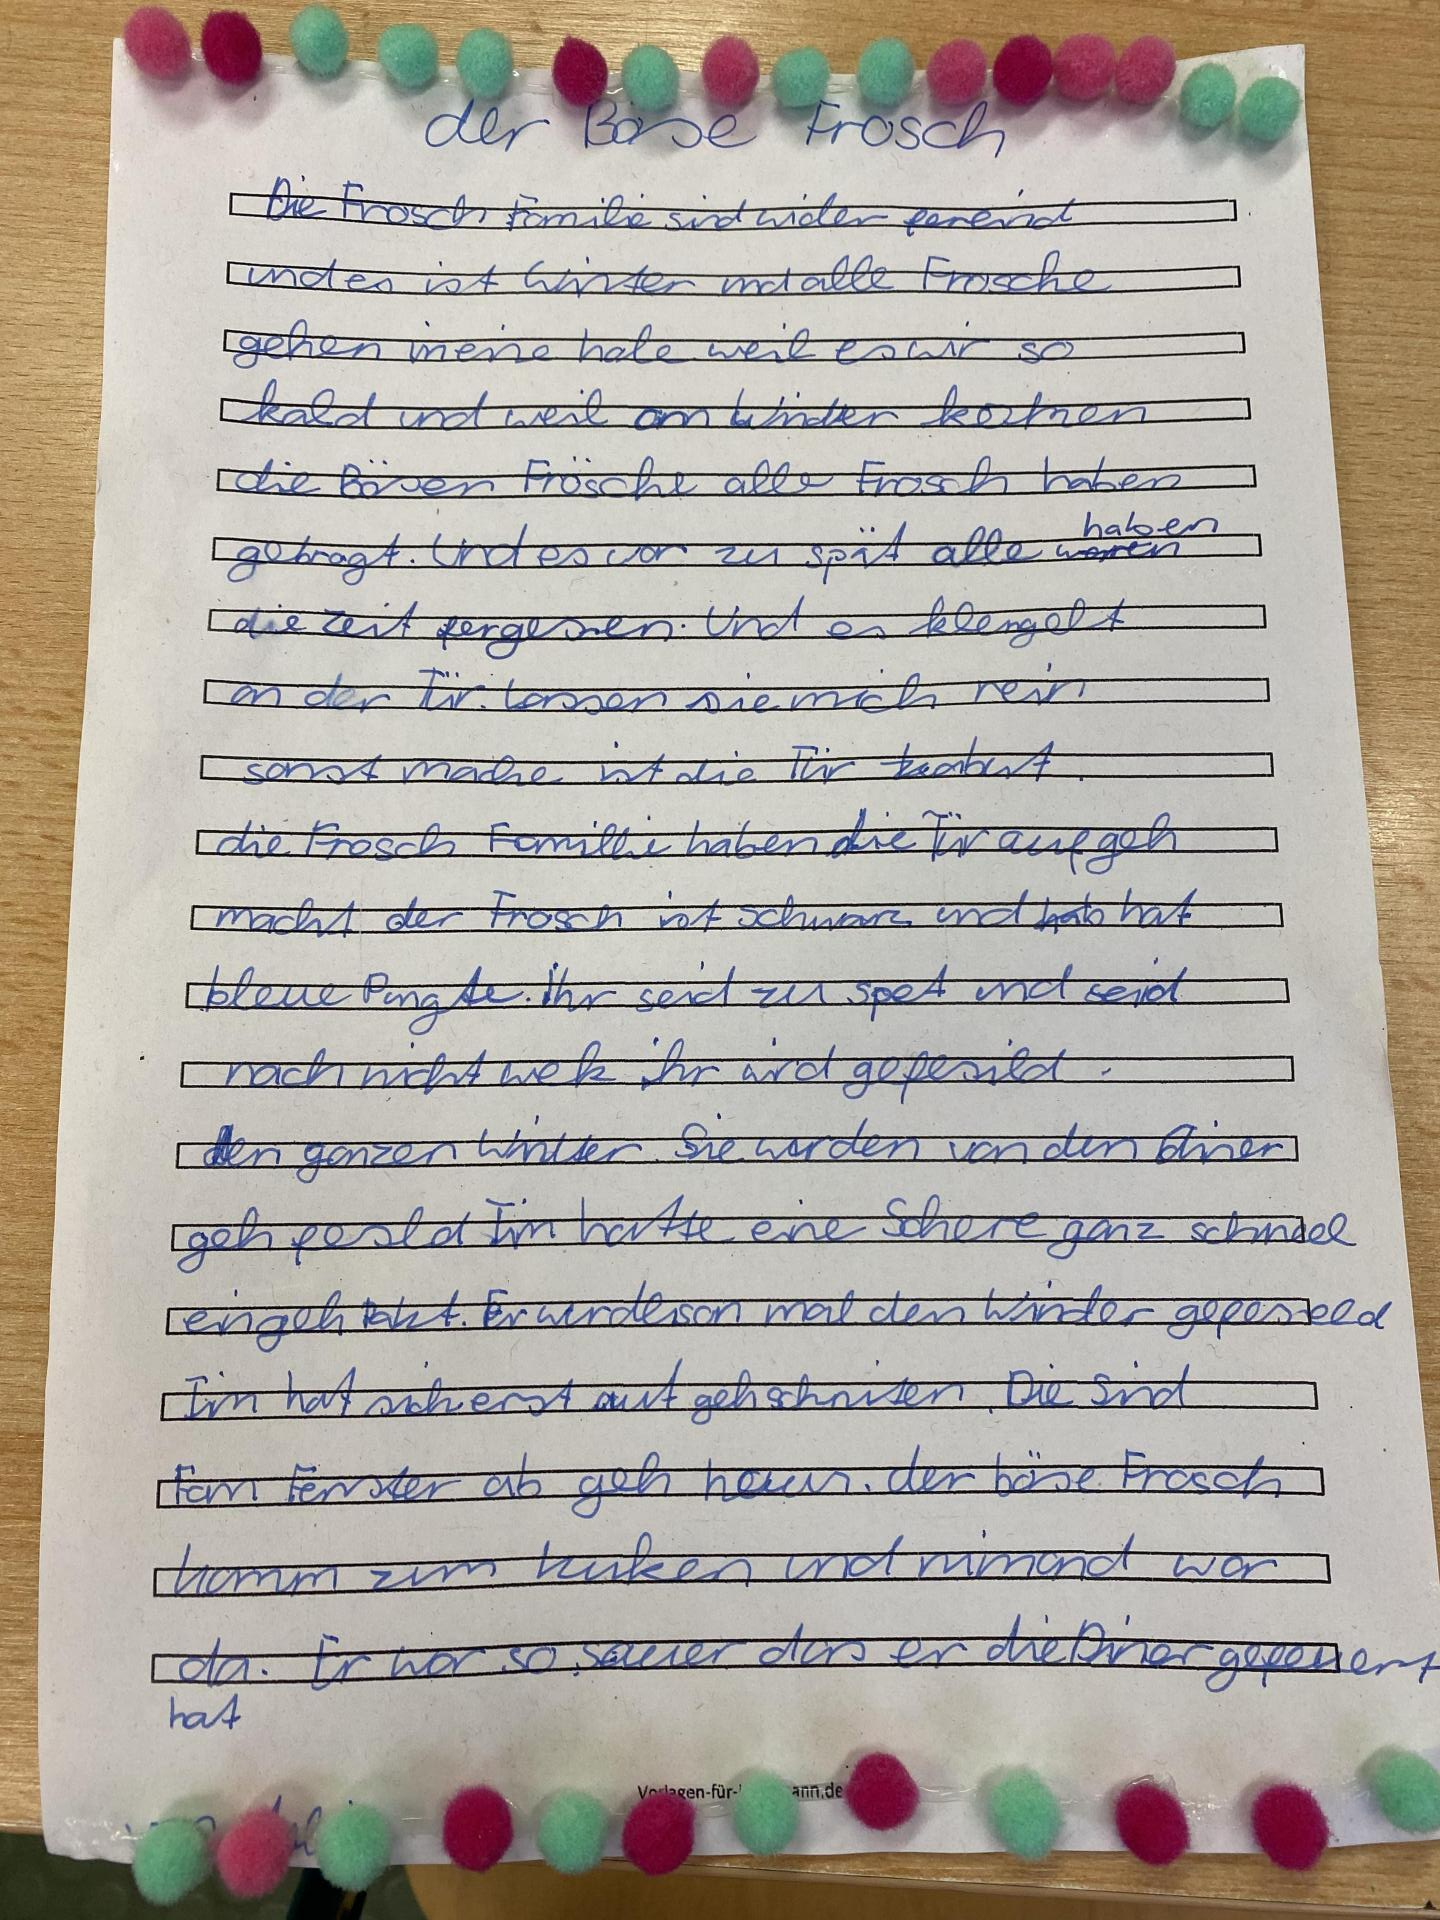 der Böse Frosch
Die Frosch Familie sind wider fereind
und es ist Winter und alle Frosche
gehen in eine hole weil es wir so
kald und weil am Winder komen
die Bösen Frösche alle Frosch haben
haben
gebragt. Und es war zu spät alle waren
die Zeit fergessen. Und es klengelt
an der Tür. Lassen sie mich rein
sonst mache ist die Tür
die Frosch Familie haben die Tür auf geh
macht der Frosch ist schwarz und hab hat
bleue Pungte. Ihr seid zu spet und seid
noch nicht wek ihr wird gefesild.
den ganzen Winter. Sie warden von den Diner
geh fesld Tim hatte eine Schere ganz schneel
eingeh. Er wurde son mal den Winder gefeseld
Tim hat sich erst auf geh schniten. Die Sind
Fom Fenster ab geh hauen. der böse Frosch
kamm zum kuken und nimand war
da. Er war so sauer das er die Diner gefeuert
hat
Vorlagen-für-
ann.de